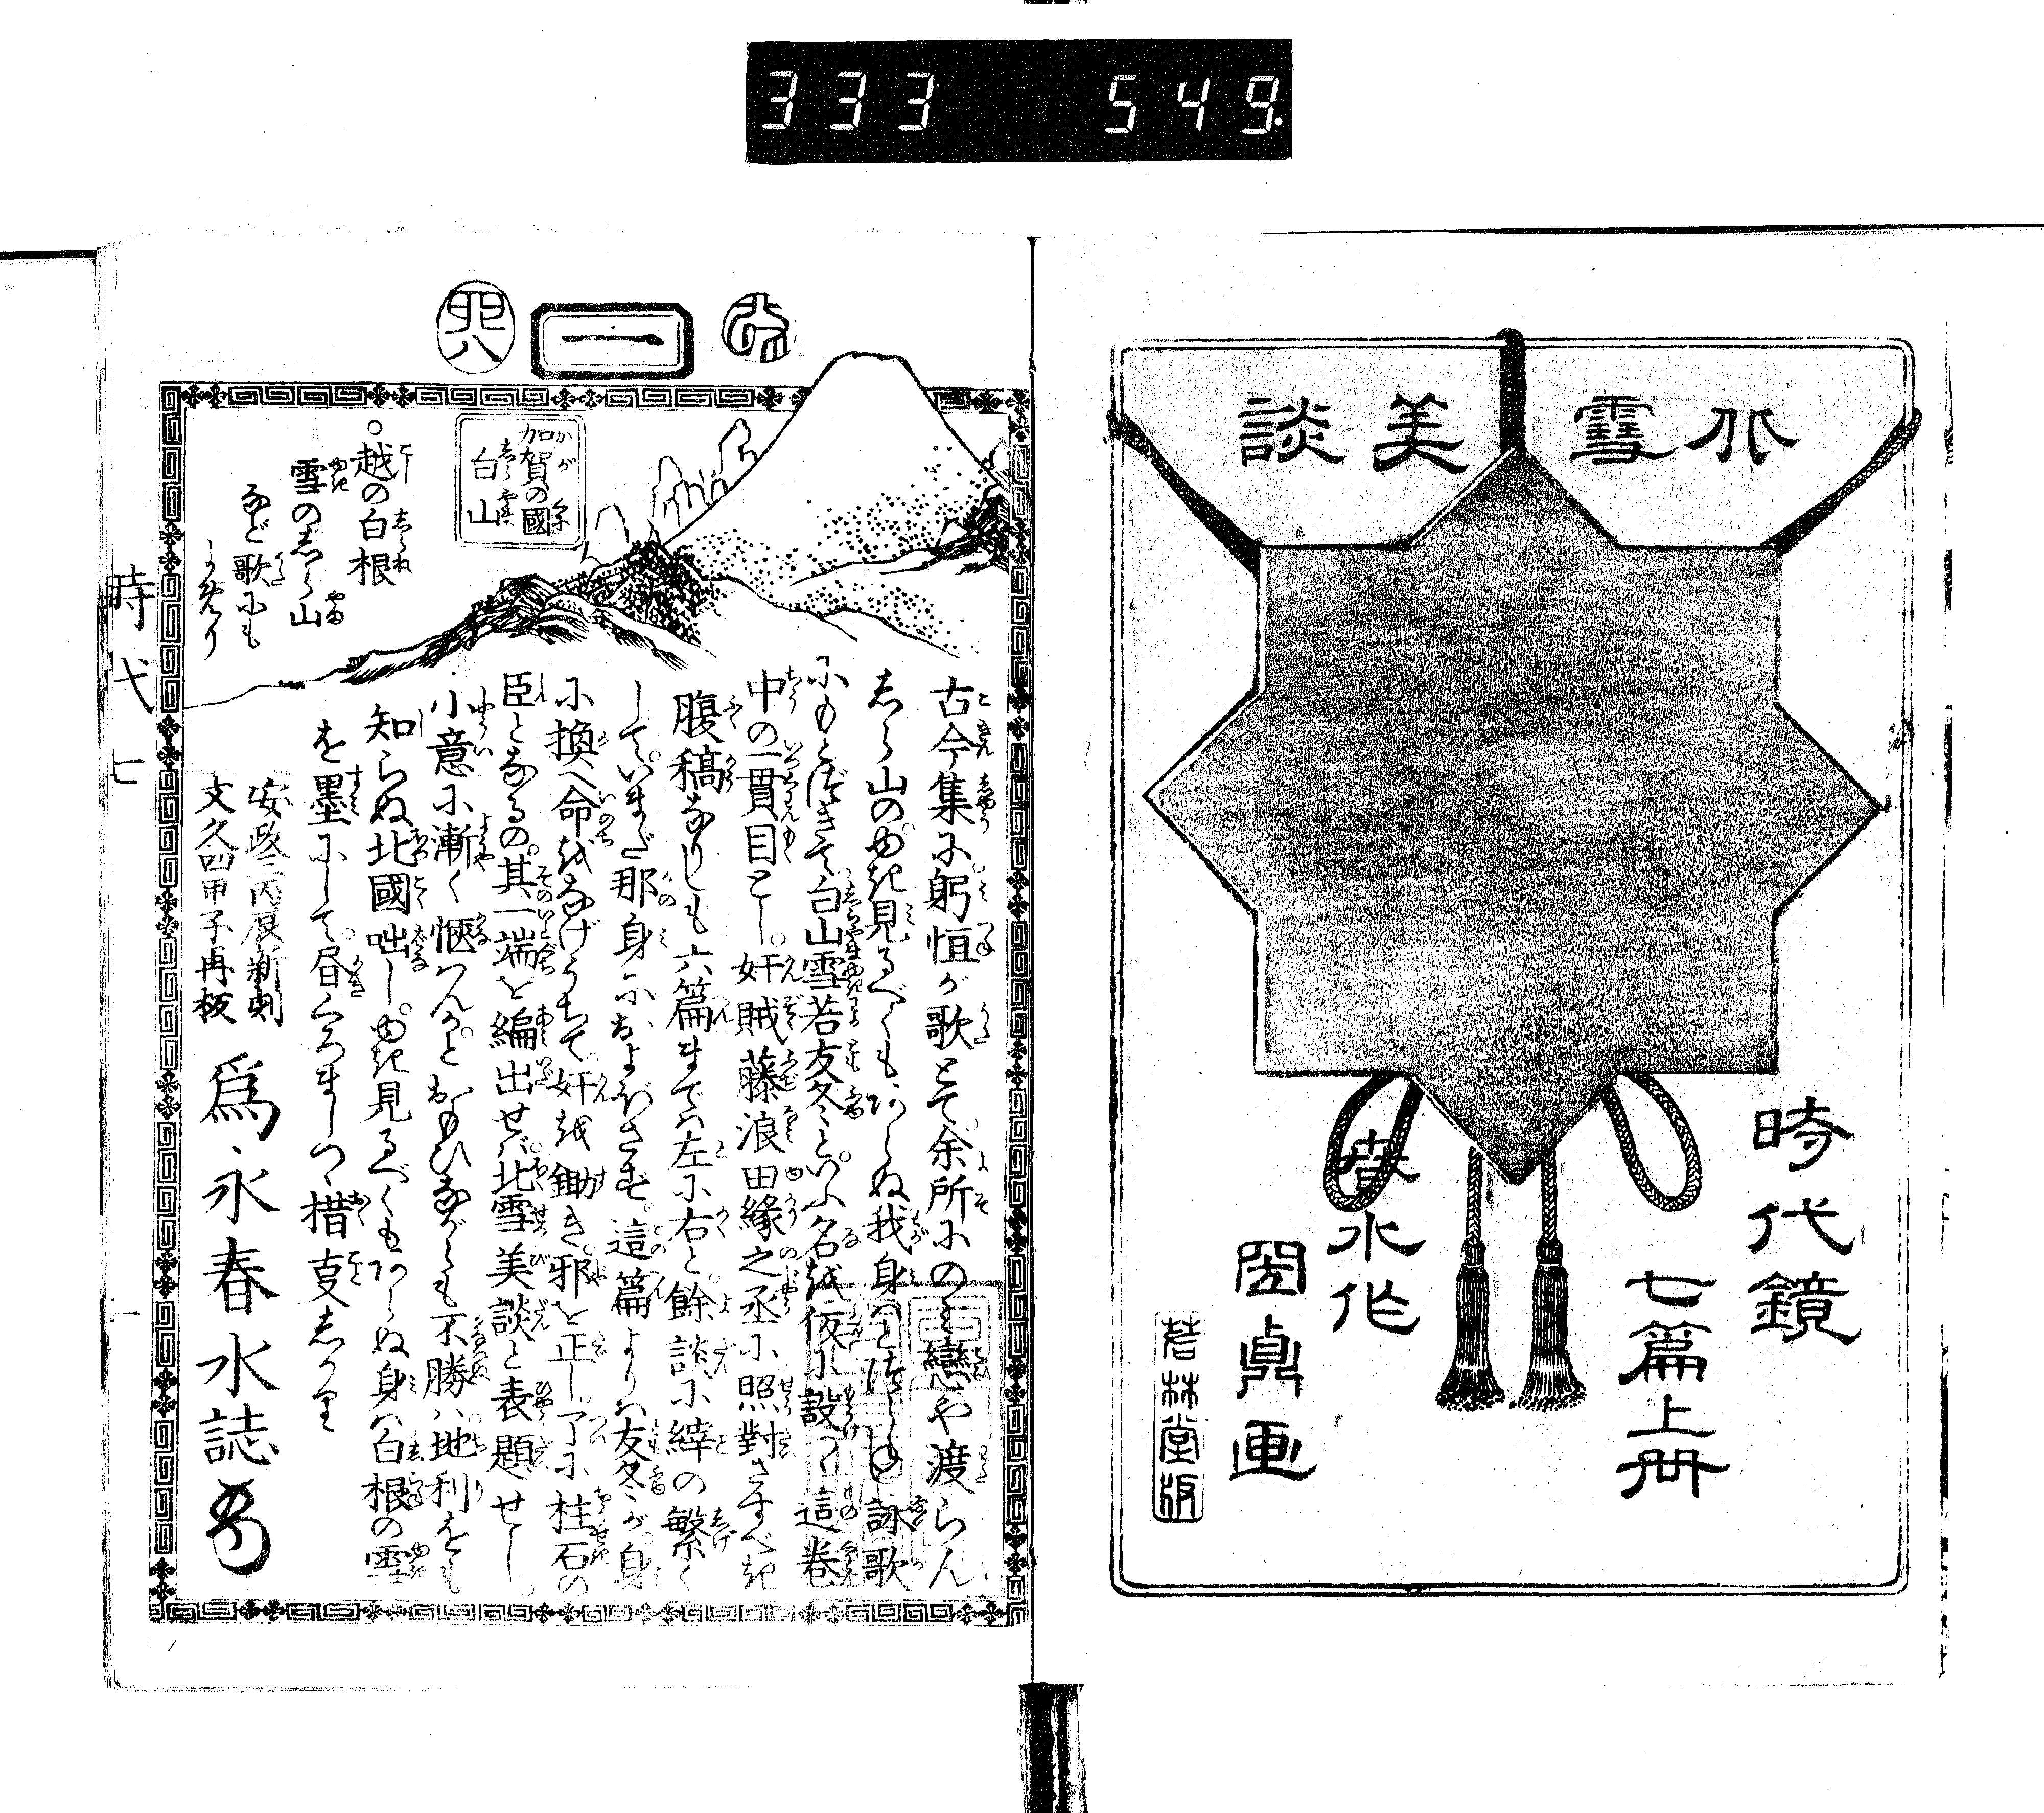 333 549
北雪美談
時代鏡
七篇上册
春水作
国鼎画
若林堂版
一
加賀の國
白山
○越の白根
雪のしら山
など歌にも
よめり
古今集に躬恒が歌とて余所にのみ戀や渡らん
しら山のゆき見るべくもあらぬ我身はと
詠歌
にもとづきて白山雪若友冬といふ名を仮に設つ這巻
中の一貫目とし。奸賊藤浪田緣之丞に照對さすべき
腹稿なりしも六篇までは左に右と餘談に繂の繁く
して。いまだ那身におよばさず。這篇よりは友冬が身
に換へ命をなげうちて。奸を鋤き。邪を正し。了に柱石の
臣となるの。其一端を編出せば。北雪美談と表題せし。
小意に漸く愜はんかとおもひながらも不勝は地利をも
知らぬ北國咄し。ゆき見るべくもあらぬ身は白根の雪
を墨にして
措
安政三丙辰新刻
文久四甲子再板
爲永春水誌
時代七
一